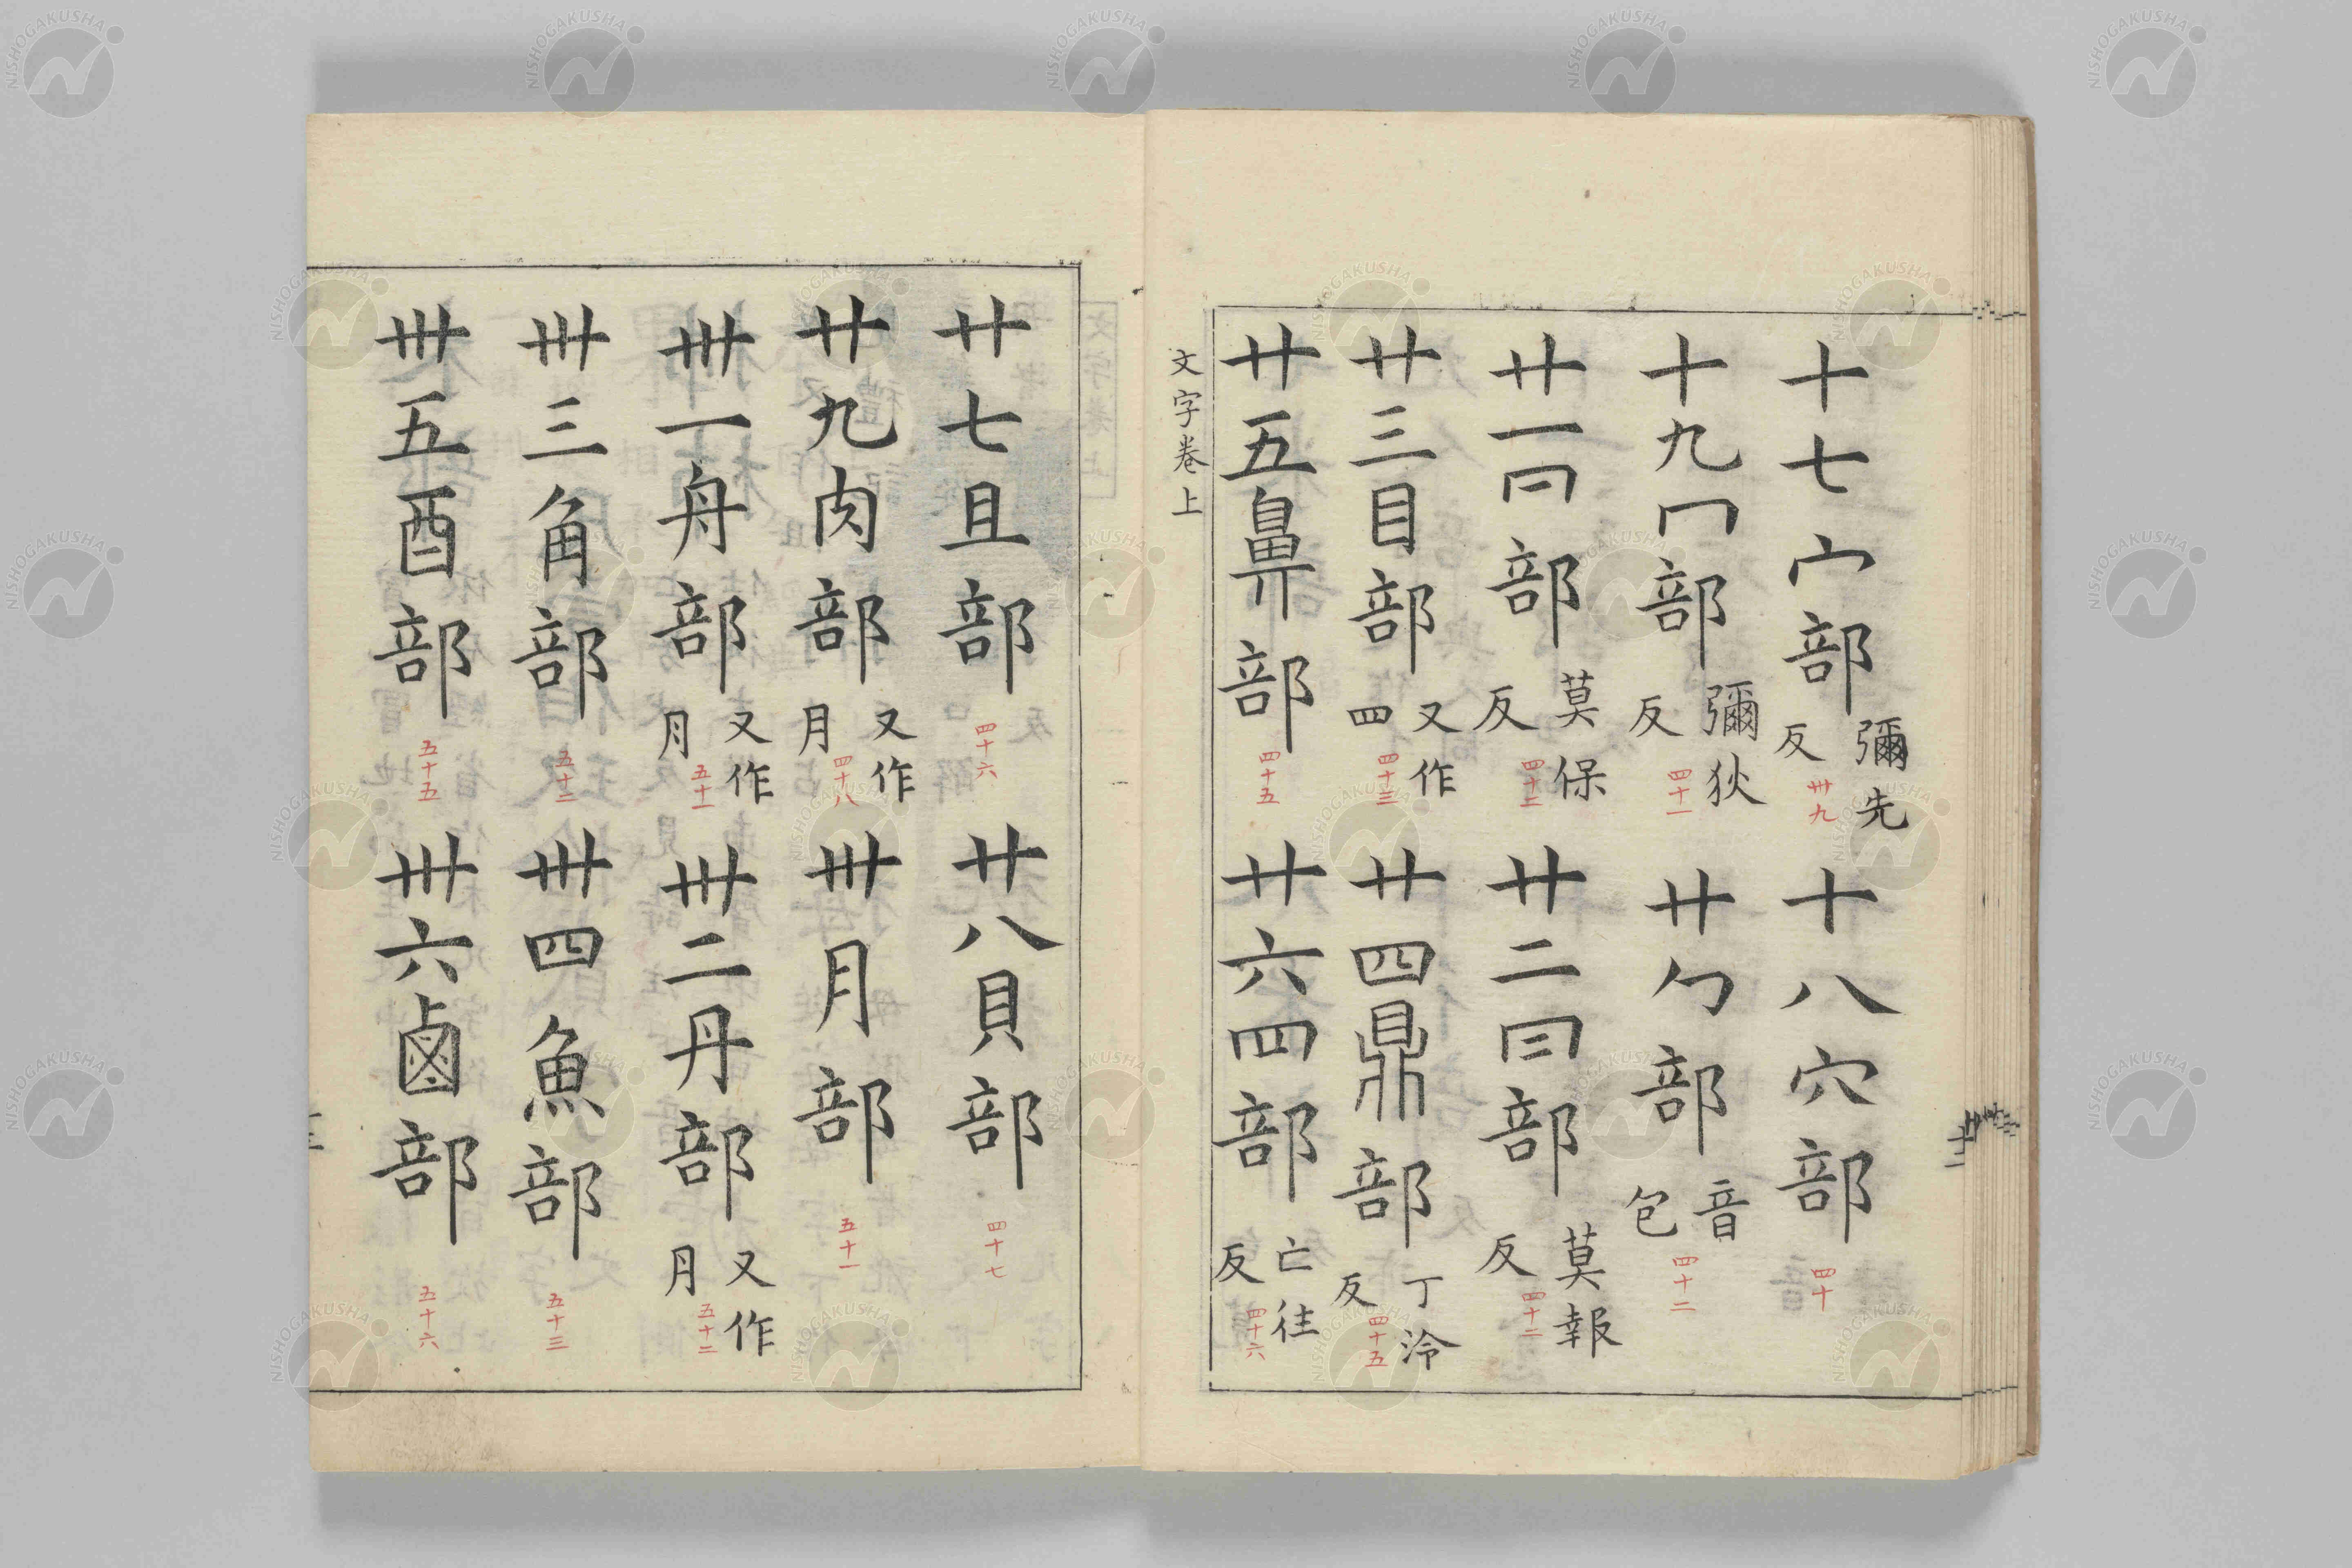 十七宀部彌先反卅九十八穴部四十
十九冂部彌狄反四十一廿勹部音包四十二
廿一冃部莫保反四十二廿二冃部莫報反四十二
廿三目部又作四四十三廿四鼎部丁泠反四十五
廿五鼻部四十五廿六四部亡往反四十六
文字卷上
廿七且部四十六廿八貝部四十七
廿九肉部又作月四十八卅月部五十一
卅一舟部又作月五十一卅二丹部又作月五十二
卅三角部五十二卅四魚部五十三
卅五酉部五十五卅六鹵部五十六
NISHOGAKUSHA